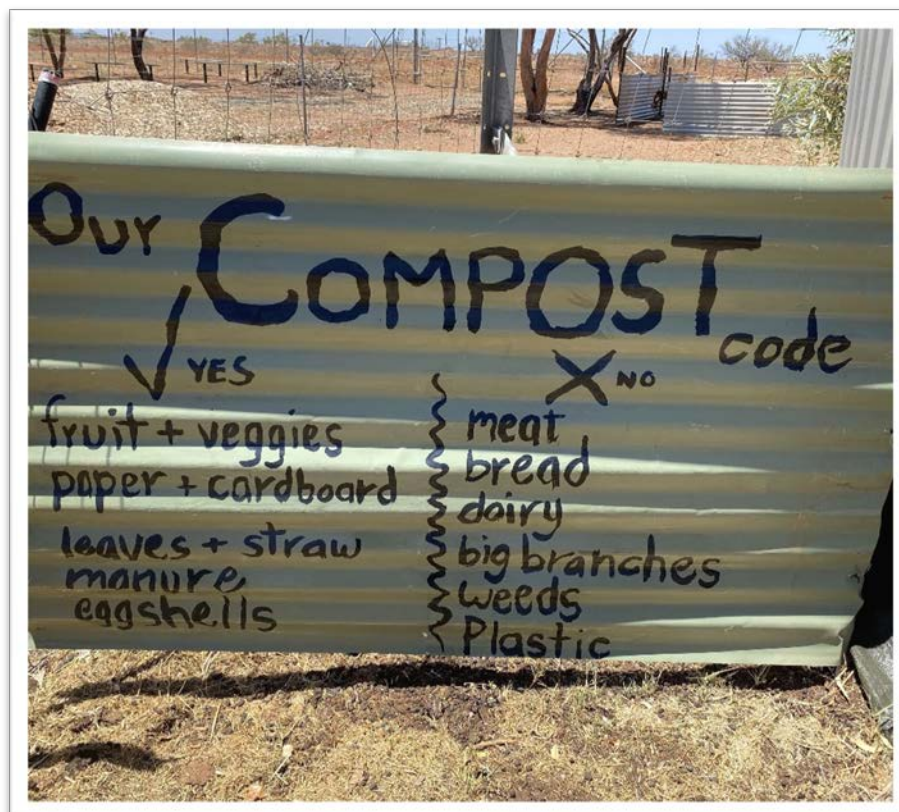 Our COMPOST code
YES
fruit + veggies
paper + cardboard
leaves + straw
manure
eggshells
NO
meat
bread
dairy
big branches
weeds
Plastic